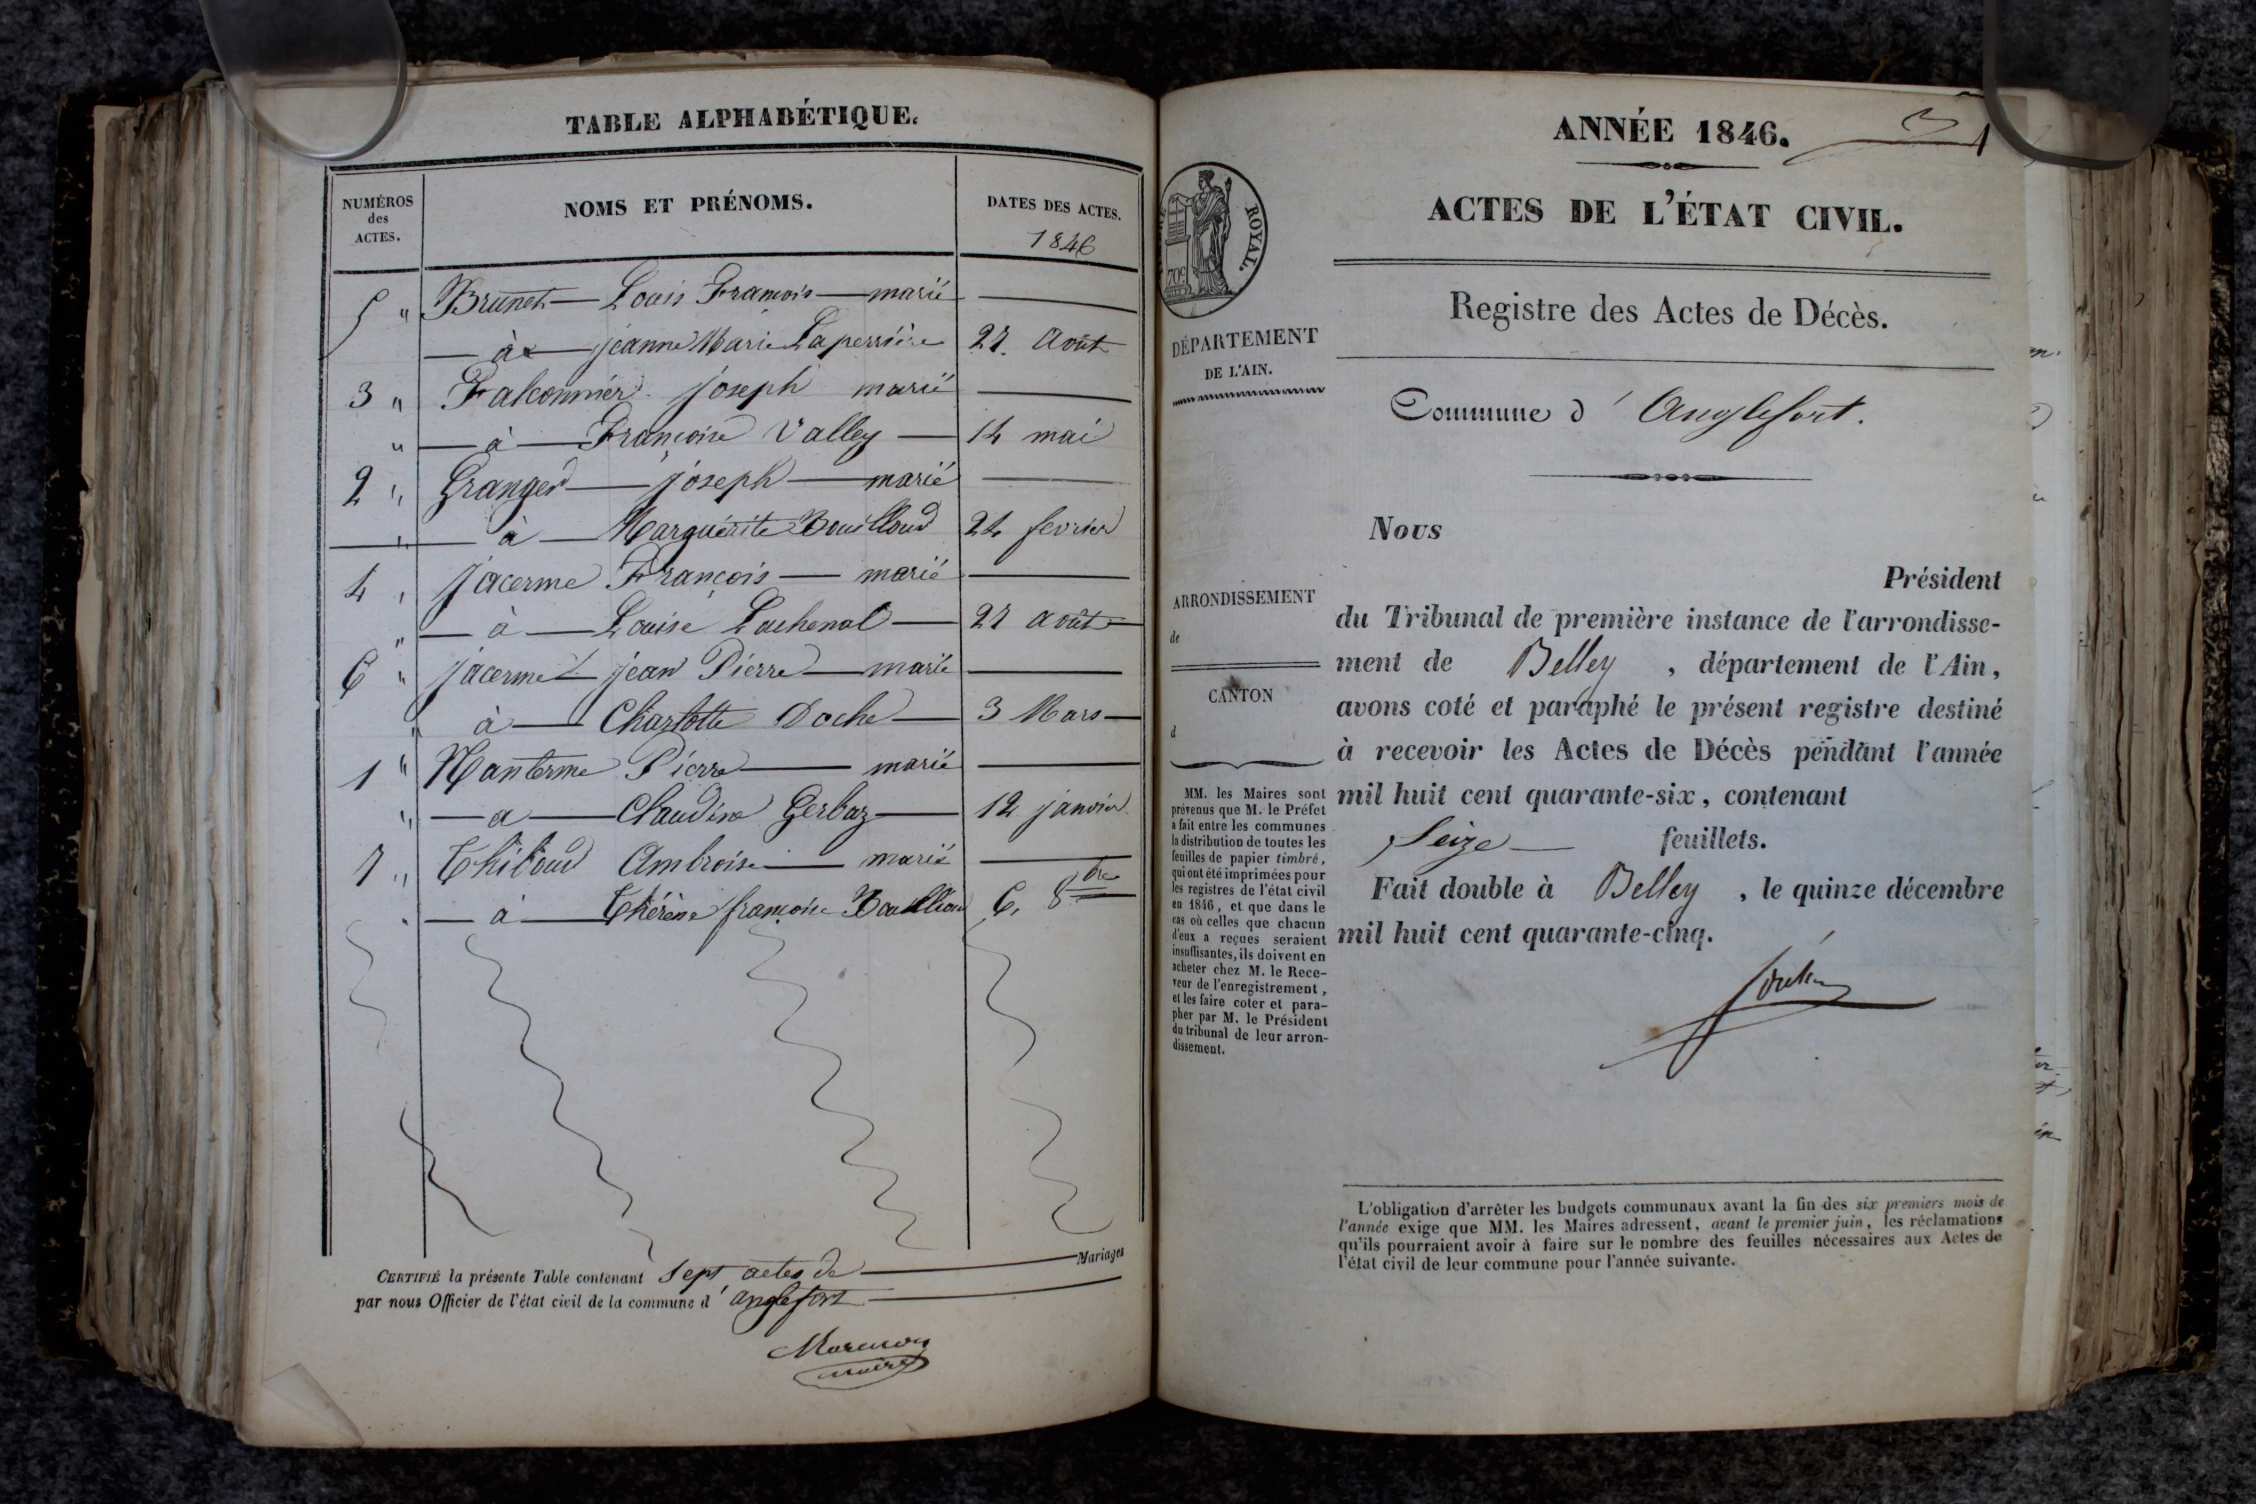 TABLE ALPHABÉTIQUE.
NUMÉROS
des
ACTES.
NOMS ET PRÉNOMS.
DATES DES ACTES.
1846
5 " Brunet — Louis François — marié —
— à — jeanne Marie Laperrière 27. Août
3 " Falconnier joseph marié —
" — à — Françoise Valley — 14 mai
2 " Granger — joseph — marié —
" — à — Marguérite Bouilloud 24 fevrier
4 " jacerme François — marié —
" — à — Louise Lachenal — 27 août —
6 " jacermet jean Pierre — marié —
" à — Charlotte Doche — 3 Mars —
1 " Manterme Pierre — marié —
" — a — Claudine Gerbaz — 12 janvier
7 " Thiboud Ambroise — marié —
" — à — Thérèse françoise 6. 8bre
CERTIFIÉ la présente Table contenant sept actes de — Mariages
par nous Officier de l'état civil de la commune d' anglefort —
maire
ANNÉE 1846.
1
ACTES DE L'ÉTAT CIVIL.
ROYAL.
70c
Registre des Actes de Décès.
DÉPARTEMENT
DE L'AIN.
Commune d' Anglefort.
Nous
Président
du Tribunal de première instance de l'arrondisse-
ment de Belley , département de l'Ain,
avons coté et paraphé le présent registre destiné
à recevoir les Actes de Décès pendant l'année
mil huit cent quarante-six, contenant
Seize — feuillets.
Fait double à Belley , le quinze décembre
mil huit cent quarante-cinq.
ARRONDISSEMENT
de
CANTON
d
MM. les Maires sont
prévenus que M. le Préfet
a fait entre les communes
la distribution de toutes les
feuilles de papier timbré,
qui ont été imprimées pour
les registres de l'état civil
en 1846, et que dans le
cas où celles que chacun
d'eux a reçues seraient
insuffisantes, ils doivent en
acheter chez M. le Rece-
veur de l'enregistrement,
et les faire coter et para-
pher par M. le Président
du tribunal de leur arron-
dissement.
L'obligation d'arrêter les budgets communaux avant la fin des six premiers mois de
l'année exige que MM. les Maires adressent, avant le premier juin, les réclamations
qu'ils pourraient avoir à faire sur le nombre des feuilles nécessaires aux Actes de
l'état civil de leur commune pour l'année suivante.